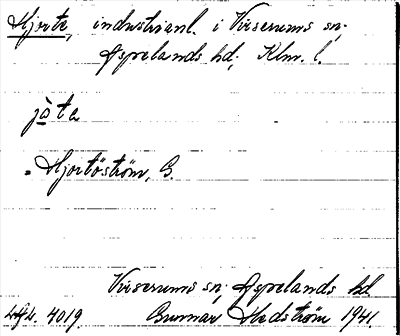 Hjorte, industrianl. i Virserums sn;
Aspelands hd; Klm. l.
jo̱ta
= Hjortöström, G.
Virserums sn; Aspelands hd
4019. Gunnar Hedström 1941